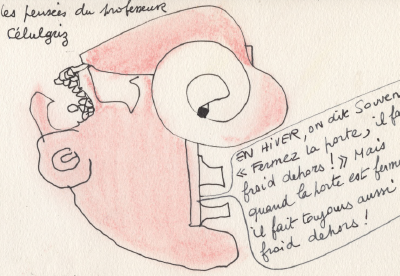 les pensées du professeure
Célulgriz
EN HIVER, on dit Souven
« Fermez la porte, il fa
froid dehors ! » Mais
quand la porte est ferm
il fait toujours aussi
froid dehors !